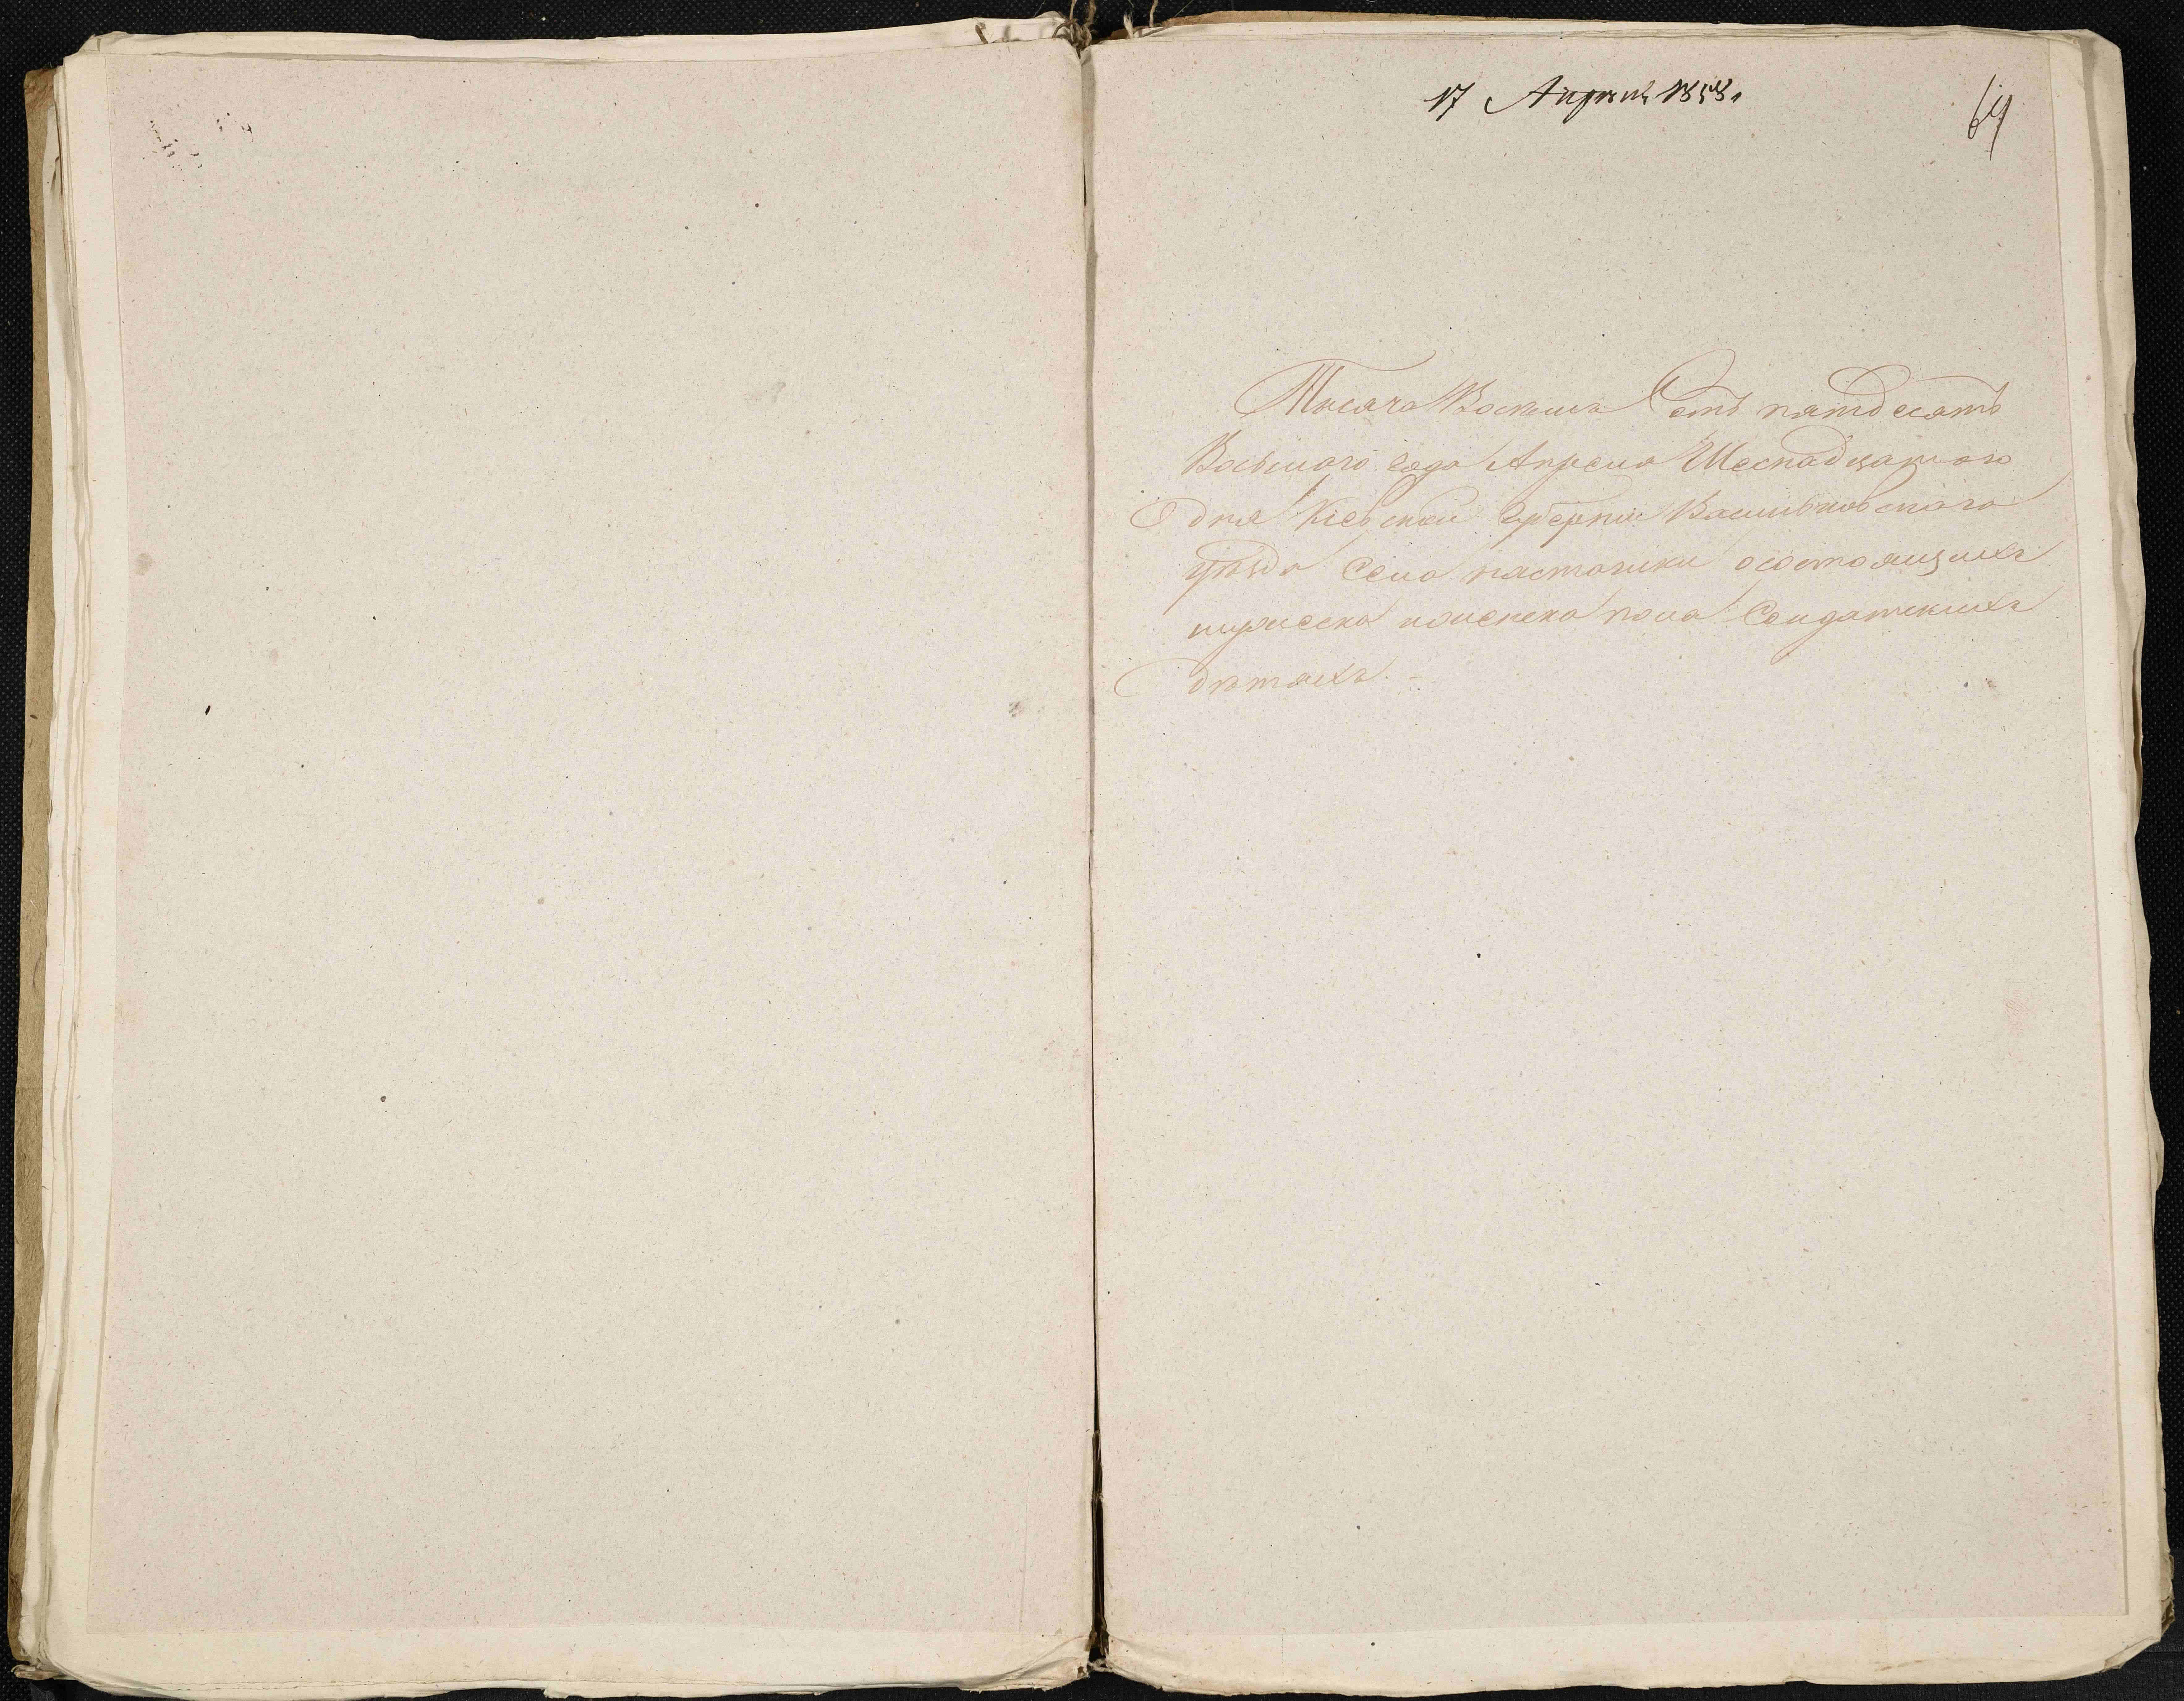 17 Апрѣля 1858.
69
Тысяча Восемъ Сотъ пятдесятъ
Восьмого года Апреля Шеснадцатого
дня Кіевской губерніи Васильковского
уѣзда Села пастошки осостоящихъ
женска пола Солдатскихъ
дѣтяхъ. –